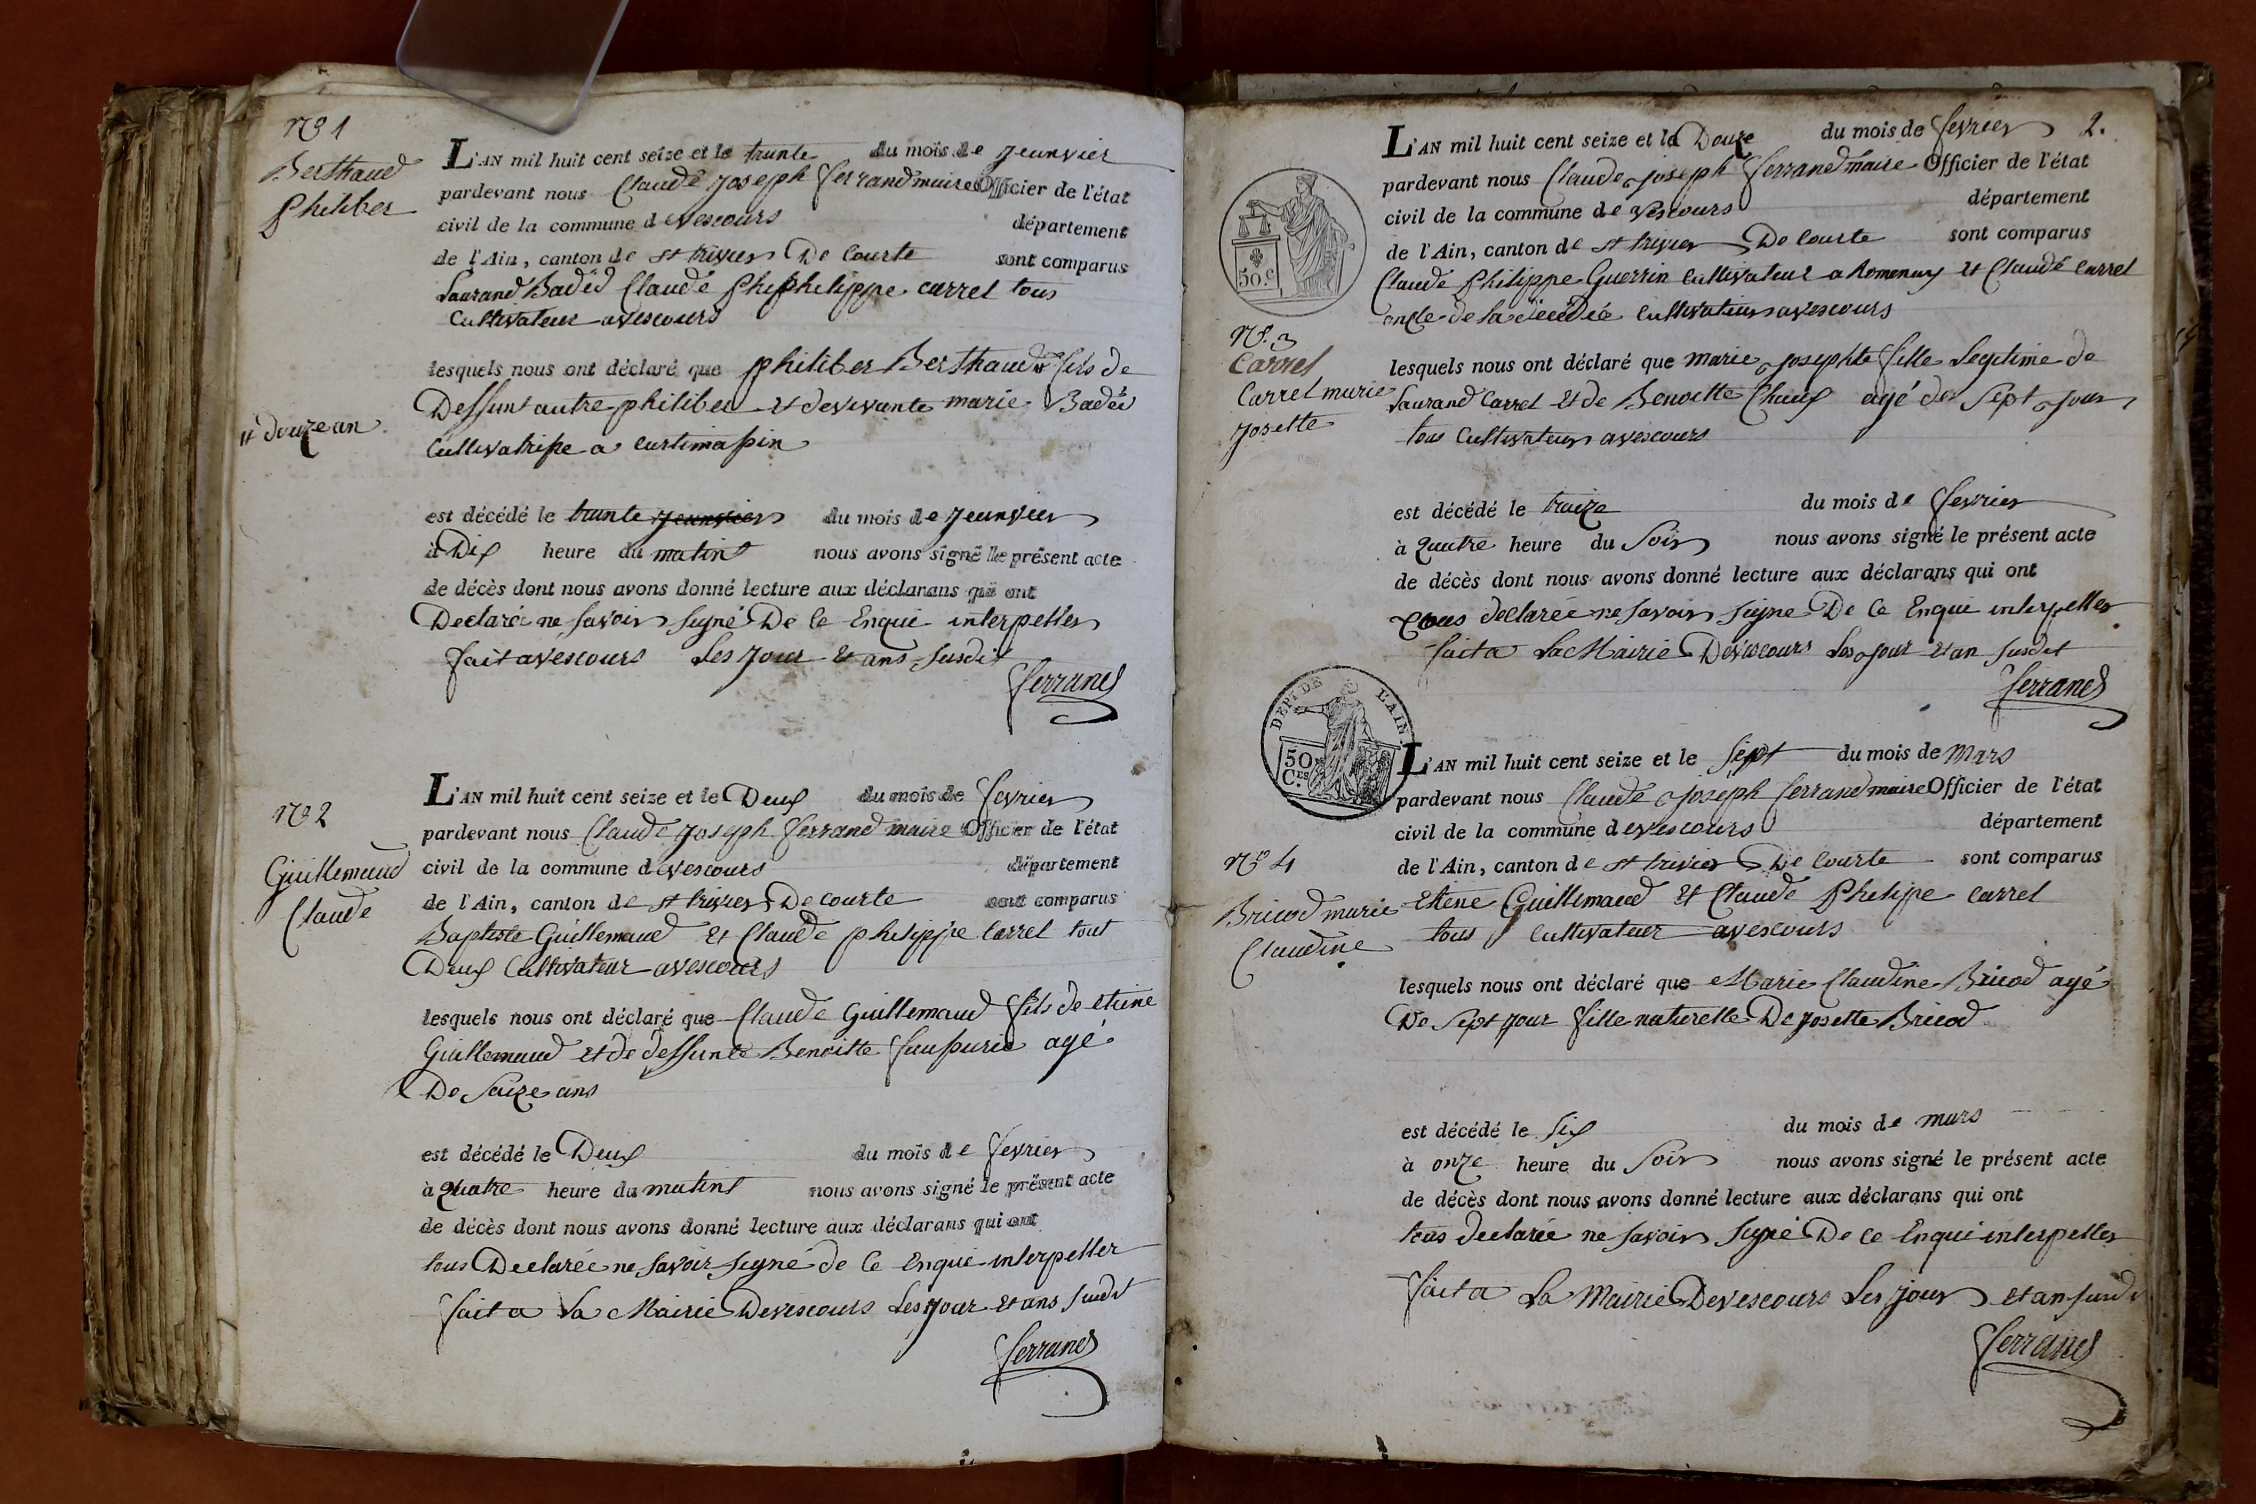 No 1
Berthaud
philiber
L'AN mil huit cent seize et le trunte du mois de Jeunvier
pardevant nous Claude Joseph ferrand maire Officier de l'état
civil de la commune devescours département
de l'Ain, canton de st trivier De Courte sont comparus
Laurand Badéd Claude phi philippe carrel tous
Cultivateur avescours
lesquels nous ont déclaré que philiber Berthaud # fils de
Deffunt autre philiber et devivante marie Badéd
# douze an
Cultivatrise a curtimasin
est décédé le trunte Jeunvier du mois de Jeunvier
à Dix heure du matint nous avons signé le présent acte
de décès dont nous avons donné lecture aux déclarans qui ont
Declaré ne savoir signé De Ce Enqui interpeller
fait avescours Les Jour et ans susdit
ferrand
No 2
Guillemaud
Claude
L'AN mil huit cent seize et le Deux du mois de fevrier
pardevant nous Claude Joseph ferrand maire Officier de l'état
civil de la commune devescours département
de l'Ain, canton de st trivier De courte sont comparus
Baptiste Guillemaud et Claude philippe Carrel tout
Deux Cultivateur avescours
lesquels nous ont déclaré que Claude Guillemaud fils de etiene
Guillemaud et de deffunte Benoitte agé
De Saize ans
est décédé le Deux du mois de fevrier
à quatre heure du matint nous avons signé le présent acte
de décès dont nous avons donné lecture aux déclarans qui ont
tous Declarée ne savoir signé de Ce Enqui interpeller
fait a La Mairie Devescours Les Jour et ans susdit
ferrand
2.
L'AN mil huit cent seize et le Douze du mois de fevrier
pardevant nous Claude Joseph ferrand maire Officier de l'état
civil de la commune de vescours département
de l'Ain, canton de st trivier De Courte sont comparus
Claude philippe Guerrin Cultivateur a Romenay et Claude Carrel
oncle de la décédée Cultivateur avescours
50.c
No. 3
Carrel
Carrel marie
Josette
lesquels nous ont déclaré que marie josephte fille Legitime de
Laurand Carrel et de Benoitte Chaux agé de Sept jour
tous Cultivateur avescours
est décédé le traize du mois de fevrier
à quatre heure du Soir nous avons signé le présent acte
de décès dont nous avons donné lecture aux déclarans qui ont
tous declarée ne savoir signe De Ce Enqui interpeller
fait a La Mairie Devescours Les jour et an susdit
ferrand
DEPT DE L'AIN
50 Ces
L'AN mil huit cent seize et le sept du mois de Mars
pardevant nous Claude joseph ferrand maire Officier de l'état
civil de la commune devescours département
de l'Ain, canton de st trivier De Courte sont comparus
No 4
Bricod marie
Claudine
Etiene Guillemaud et Claude philipe Carrel
tous cultivateur avescours
lesquels nous ont déclaré que Marie Claudine Bricod agé
De Sept Jour fille naturelle De Josette Bricod
est décédé le six du mois de mars
à onze heure du Soir nous avons signé le présent acte
de décès dont nous avons donné lecture aux déclarans qui ont
tous declarée ne savoir signé De Ce Enqui interpeller
fait a La Mairie Devescours Les jour et an susdit
ferrand